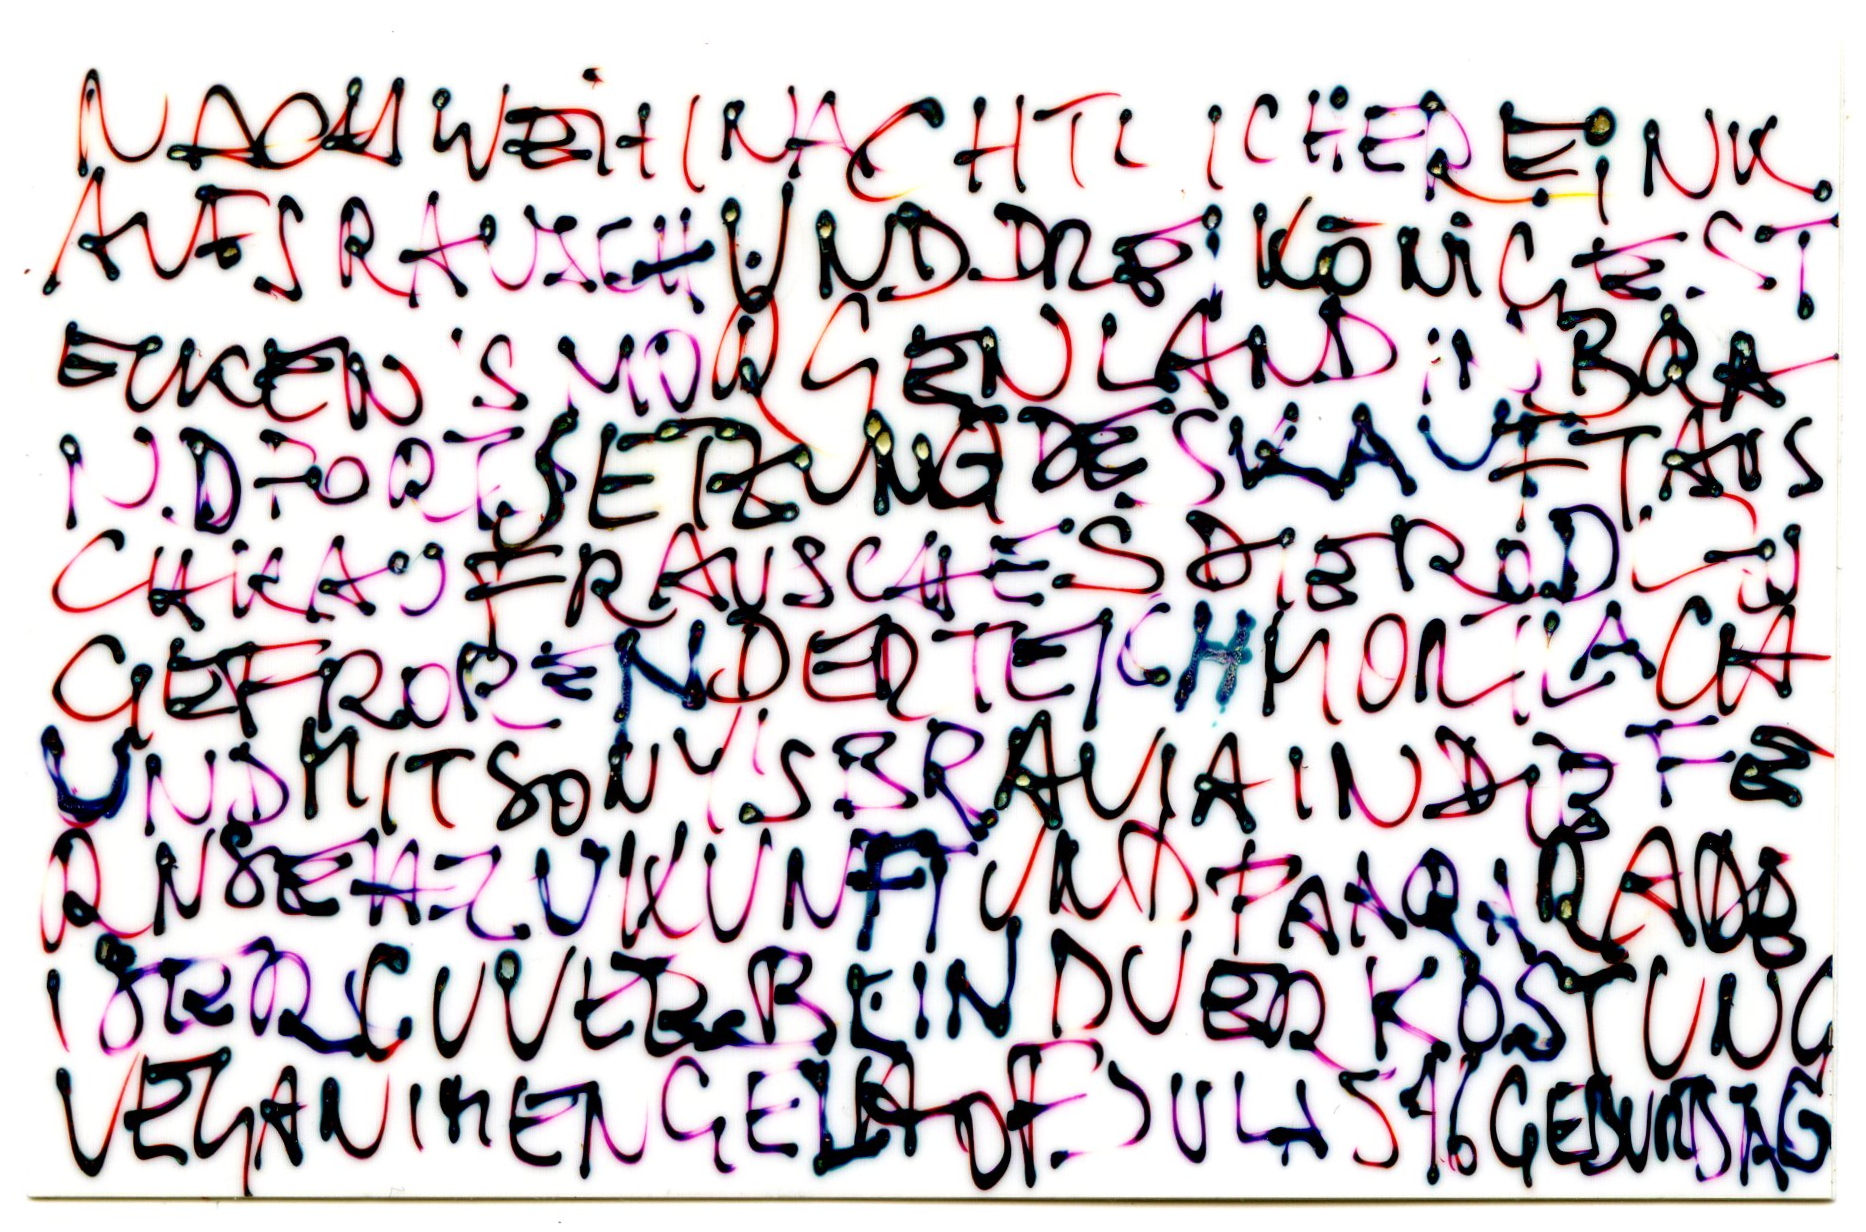 NACHWEIHNACHTLICHER EINK
AUFSRAUSCH UND DREIKÖNIGE ST
ECKEN'S MORGENLAND IN BRA
N.D FORTSETZUNG DES KAUFTAUS
CHRAUFRAUSCHES DER
GEFROREN DER TEICH MORTLACH
UND MIT SONY'S BRAVIA IN DIE FE
RNSEHZUKUNFT UND
CUVEE BEIN DUERKOSTUNG
VEGAN IM ENGELHOF JULIS 46 GEBURTSTAG